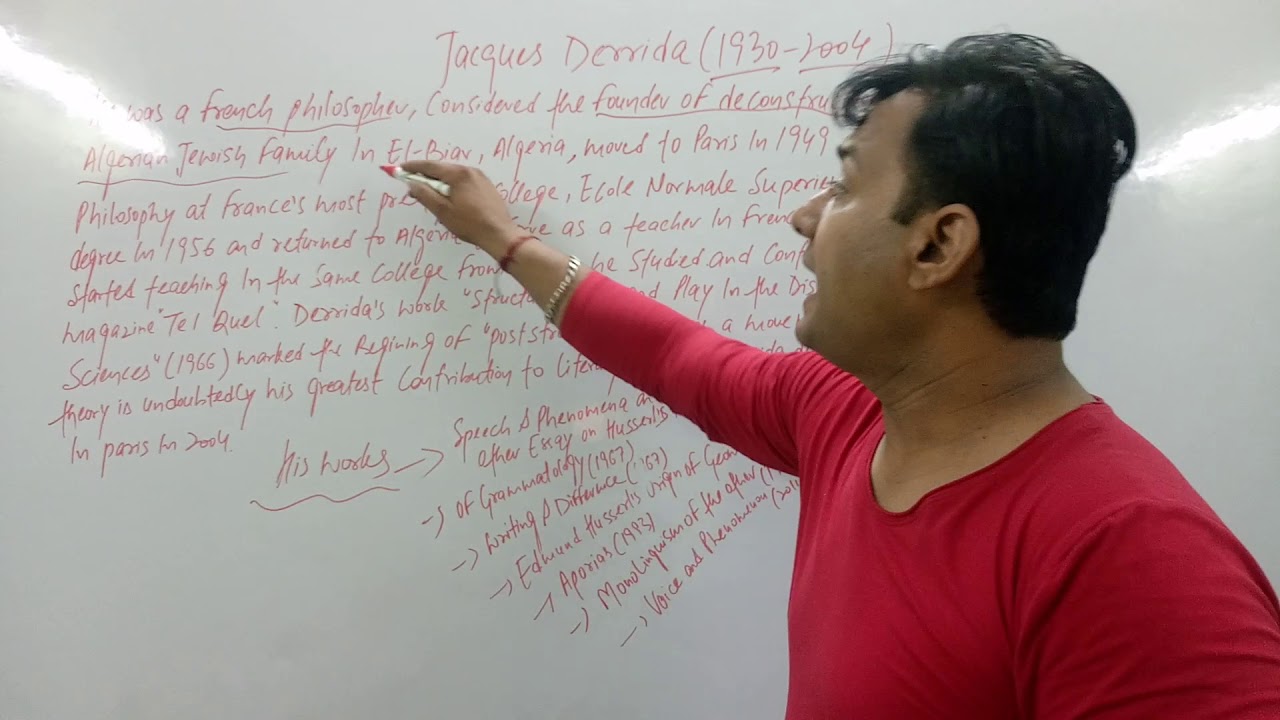 Jacques Derrida (1930-2004)
was a french philosopher, Considered the founder of deconstru
Algerian Jewish Family In El-Biar, Algeria, moved to Paris In 1949
Philosophy at France's most pre college, Ecole Normale Superie
degree In 1956 and returned to Algeri as a teacher In French
Started teaching In the Same College from he Studied and Cont
magazine "Tel Quel". Derrida's work "Struct nd Play In the Dis
Sciences" (1966) marked the Regining of "postst a move
theory is undoubtedly his greatest Contribution to Liter
In paris In 2004.
His works → Speech & Phenomena an
other Essay on Husserl's
→ of Grammatology (1967)
→ Writing & Difference ('67)
→ Edmund Husserl's origin of Geom
→ Aporias (1993)
→ Monolinguism of the other (1
→ Voice and Phenomenon (2011